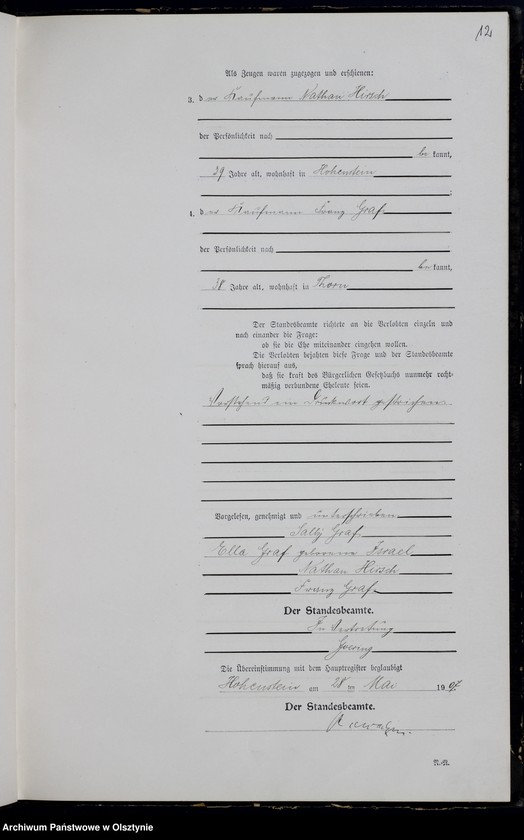 12
Als Zeugen waren zugezogen und erschienen:
3. der Kaufmann Nathan Hirsch
der Persönlichkeit nach
be kannt,
39 Jahre alt, wohnhaft in Hohenstein
;
4. der Kaufmann Franz Graf
der Persönlichkeit nach
be kannt,
38 Jahre alt, wohnhaft in Thorn
Der Standesbeamte richtete an die Verlobten einzeln und
nach einander die Frage:
ob sie die Ehe miteinander eingehen wollen.
Die Verlobten bejahten diese Frage und der Standesbeamte
sprach hierauf aus,
daß sie kraft des Bürgerlichen Gesetzbuchs nunmehr recht-
mäßig verbundene Eheleute seien.
Vorstehend ein Druckwort gestrichen.
Vorgelesen, genehmigt und unterschrieben
Sally Graf
Ella Graf geborene Israel
Nathan Hirsch
Franz Graf
Der Standesbeamte.
In Vertretung
Die Übereinstimmung mit dem Hauptregister beglaubigt
Hohenstein am 28 ten Mai 1907.
Der Standesbeamte.
N.-N.
Archiwum Państwowe w Olsztynie